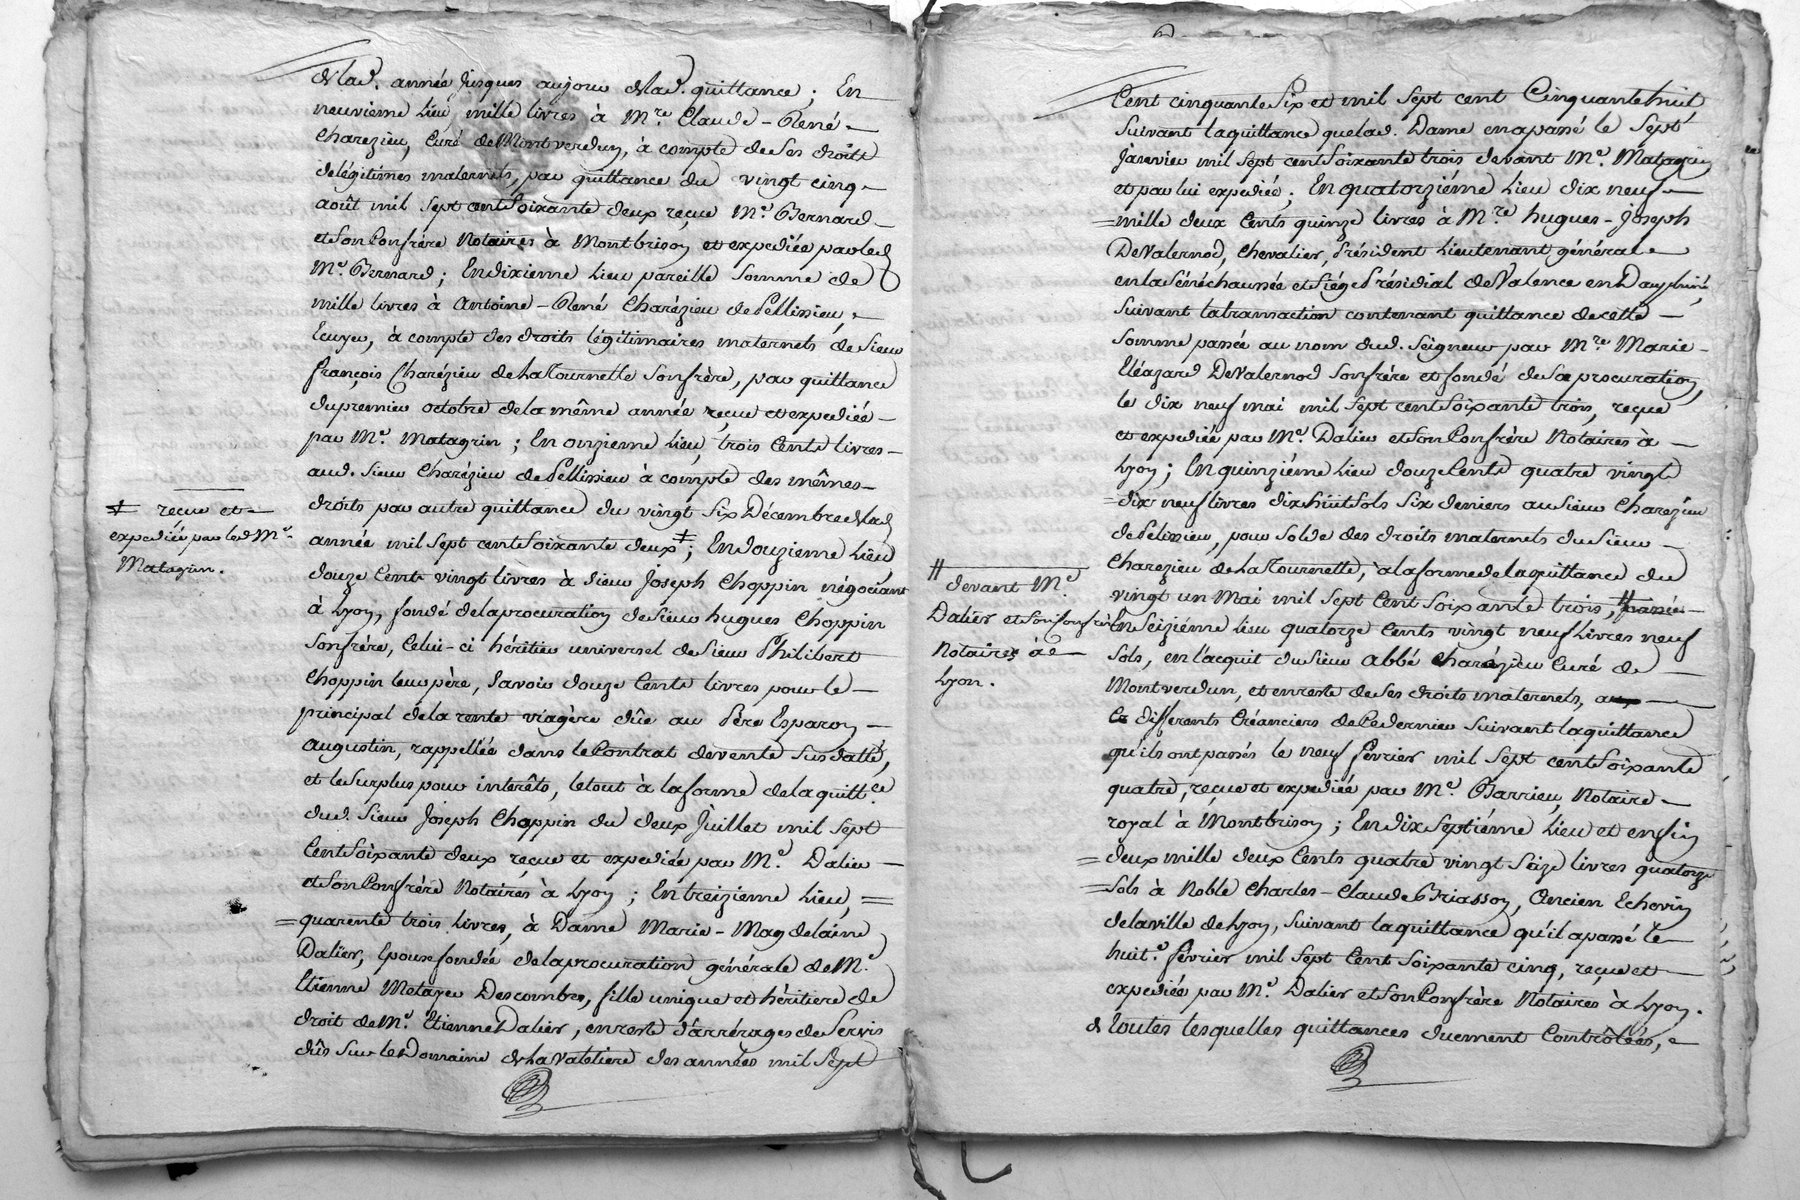 de lad. année jusques aujour de lad. quittance ; En
neuvieme lieu, mille livres à Mre. Claude-René
Charezieu, Curé de Montverdun, à compte de ses droits
de légitimes maternels, par quittance du vingt cinq
août mil sept cent soixante deux, reçue Me. Bernard
et son Confrère Notaires à Montbrison et expediée par led.
Me. Bernard ; En dixieme lieu pareille somme de
mille livres à Antoine-René Charézieu de Pellissieu,
Ecuyer, à compte des droits légitimaires maternels de sieur
françois Charézieu de La Tournette son frère, par quittance
du premier octobre de la même année, reçue et expediée
par Me. Matagrin ; En onzieme lieu, trois cents livres
aud. sieur Charézieu de Pellissieu à compte des mêmes
droits par autre quittance du vingt six Décembre de lad.
‡ reçue et
expediée par led. Me.
Matagrin.
année mil sept cent soixante deux ‡ ; En douzieme lieu,
douze cents vingt livres à sieur Joseph Choppin négociant
à Lyon, fondé de la procuration de sieur hugues Choppin
son frère, Celui-ci héritier universel de sieur Philibert
Choppin leur père, savoir douze cents livres pour le
principal de la rente viagère dûe au Père Esparon
augustin, rappellée dans le Contrat de vente susdatté,
et le surplus pour intérêts, le tout à la forme de la quittce.
dud. sieur Joseph Choppin du deux Juillet mil sept
Cent soixante deux, reçue et expediée par Me. Dalier
et son Confrère Notaires à Lyon ; En treizieme lieu, =
= quarente trois livres, à Dame Marie-Magdelaine
Dalier, Epouse fondée de la procuration générale de Me.
Etienne Metayer Descombes, fille unique et héritiere de
droit de Me. Etienne Dalier, en reste d'arrérages de servis
dûs sur le Domaine de La Valetiere des années mil sept
Cent cinquante six et mil sept cent Cinquante huit
suivant la quittance que lad. Dame en a passé le sept
janvier mil sept cent soixante trois devant Me. Matagrin
et par lui expediée ; En quatorziéme lieu dix neuf
= mille deux cents quinze livres à Mre. hugues-Joseph
De Valernod, Chevalier, Président Lieutenant général
en la Sénéchaussée et Siége Présidial de Valence en Dauphiné,
suivant la transaction contenant quittance de cette
somme passée au nom dud. Seigneur par Mre. Marie-
Eléazard De Valernod son frère et fondé de sa procuration,
le dix neuf mai mil sept cent soixante trois, reçue
et expediée par Me. Dalier et son Confrère Notaires à
Lyon ; En quinziéme lieu douze Cents quatre vingt
= dix neuf livres dix huit sols six deniers au sieur Charezieu
de Pelissieu, pour solde des droits maternels du sieur
Charezieu de La Tournette, à la forme de la quittance du
vingt un Mai mil sept Cent soixante trois, # passée
# devant Me.
Dalier et son Confrère
Notaires à
Lyon.
En seiziéme lieu quatorze Cents vingt neuf Livres neuf
sols, en l'acquit du sieur abbé Charézieu Curé de
Montverdun, et en reste de ses droits maternels, a
differents Créanciers de ce dernier suivant la quittance
qu'ils ont passés le neuf février mil sept cent soixante
quatre, reçue et expediée par Me. Barrieu, Notaire
royal à Montbrison ; En dix septiéme lieu et enfin
= deux mille deux Cents quatre vingt seize livres quatorze
= sols à Noble Charles-Claude Briasson, Ancien Echevin
de la ville de Lyon, suivant la quittance qu'il a passé le
huit février mil sept Cent soixante cinq, reçue et
expediée par Me. Dalier et son Confrère Notaires à Lyon.
de toutes lesquelles quittances duement Contrôlées,